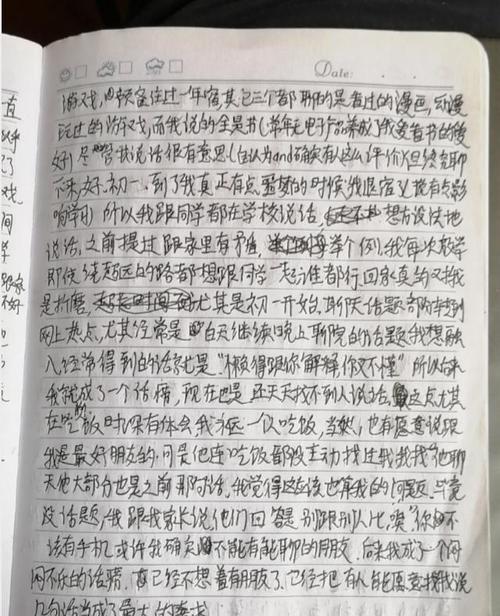 Date:
游戏,四顿宿住过一年宿,其它三个都聊的是看过的漫画,动漫
玩过的游戏,而我说的全是书(常年无电子产品养成了我爱看书的好
好)尽管我说话很有意思(自认为and确实有这么评价)但终究聊
下来好.初一,到了我真正有点噩梦的时候(我退宿又没有点影
响学习)所以我跟同学都在学校说话,想方设法地
说话,之前提过跟家里有矛盾,举个例,我每次放学
即使绕超区的路都想跟同学一起,谁都行,回家真的又找
是折磨,尤其是初一开始,聊天话题都转到
网上热点,尤其经常是白天继续晚上聊完的话题,我想融
入,经常得到的话就是"懒得跟你解释你又不懂"所以后来
我就成了一个话痨,现在也是,还天天找不到人说话,这点尤其
在吃饭时深有体会,我永远一个人吃饭,当然,也有愿意说跟
我是最好朋友的,可是他连吃饭都没主动找过我,我找他聊
天他大部分也是之前那对话,我觉得这应该也算我的问题.毕竟
没话题,我跟我家长说他们回答是别跟别人比,类"你不
该有手机"或许我确实不能有能聊的朋友,后来我成了一个闷
闷不乐的话痨,直已经不想着有朋友了,已经把有人能愿意找我说
几句话当成了最大的奢求